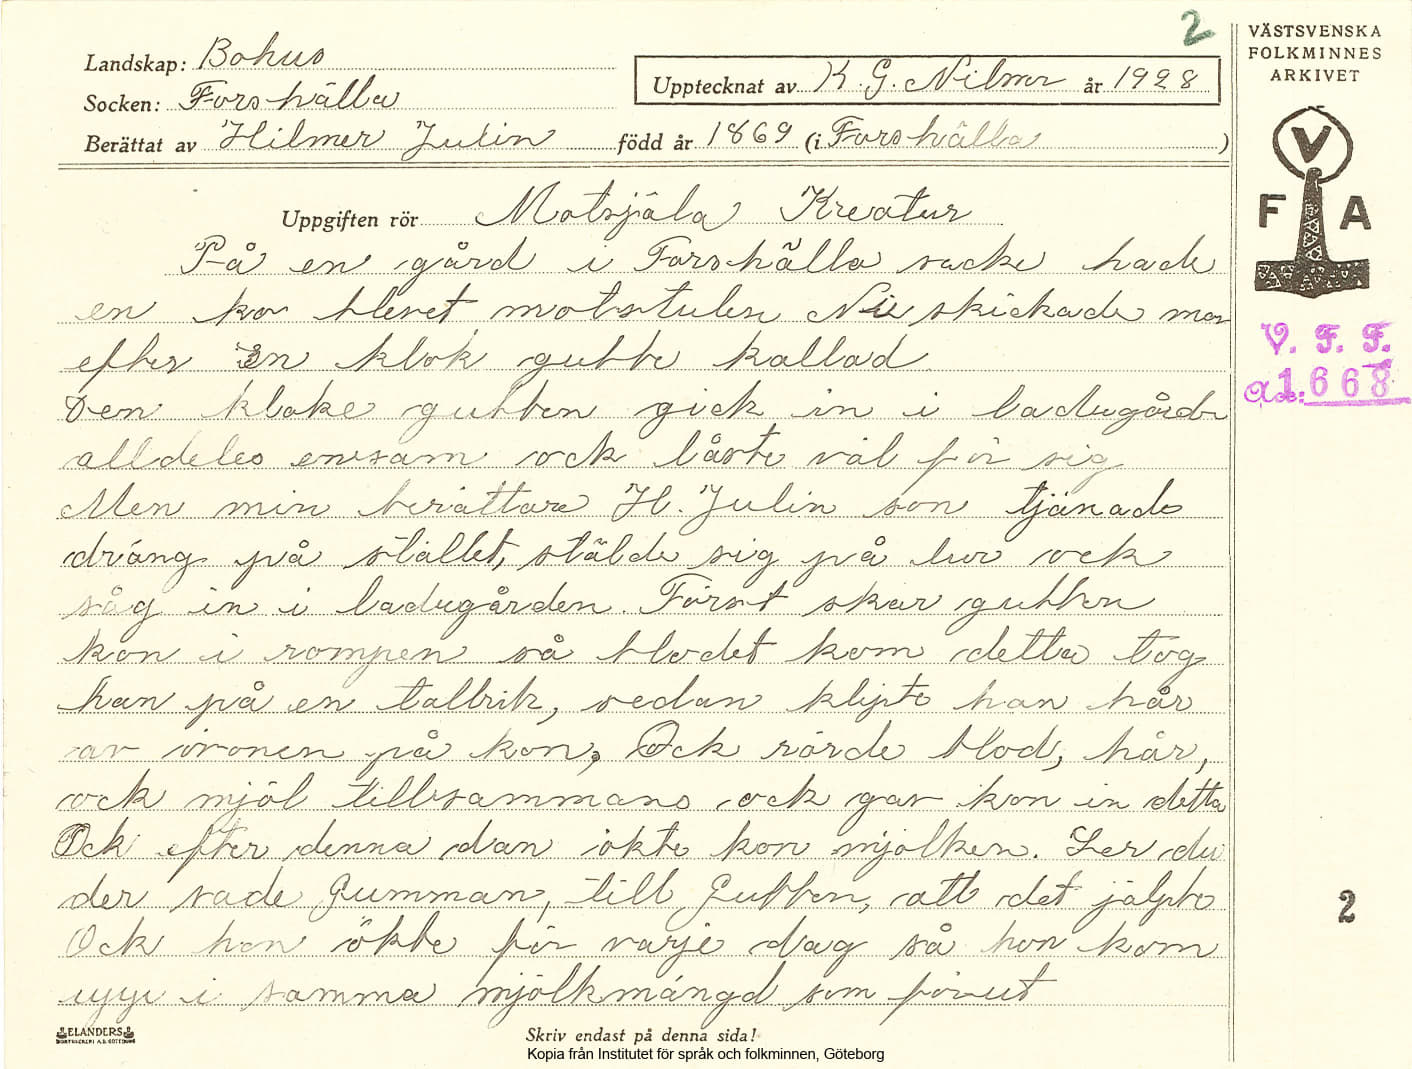 2
VÄSTSVENSKA
FOLKMINNES
ARKIVET
Landskap: Bohus
Socken: Forshälla
Upptecknat av K. G. Nilmer år 1928
Berättat av Hilmer Julin född år 1869 (i Forshälla)
V
F A
Uppgiften rör Motsjäla Kreatur
På en gård i Forshälla socke hade
en ko blevet motstulen Nu skickade man
efter en klok gubbe kallad
Den kloke gubben gick in i ladugården
alldeles ensam ock låste väl för sig
Men min berättare H. Julin son tjänade
dräng på stället, stälde sig på lur ock
såg in i ladugården. Först skar gubben
kon i rompen så blodet kom detta tog
han på en tallrik, sedan klipte han hår
av öronen på kon, Ock rörde blod, hår,
ock mjöl tillsammans ock gav kon in detta
Ock efter denna dan ökte kon mjölken. Ser du
der sade Gumman, till Gubben, att det jälpte
Ock hon ökte för varje dag så hon kom
upp i samma mjölkmängd som förut
V. F. F.
Acc: 1668
2
ELANDERS
BOKTRYCKERI A.B. GÖTEBORG
Skriv endast på denna sida!
Kopia från Institutet för språk och folkminnen, Göteborg